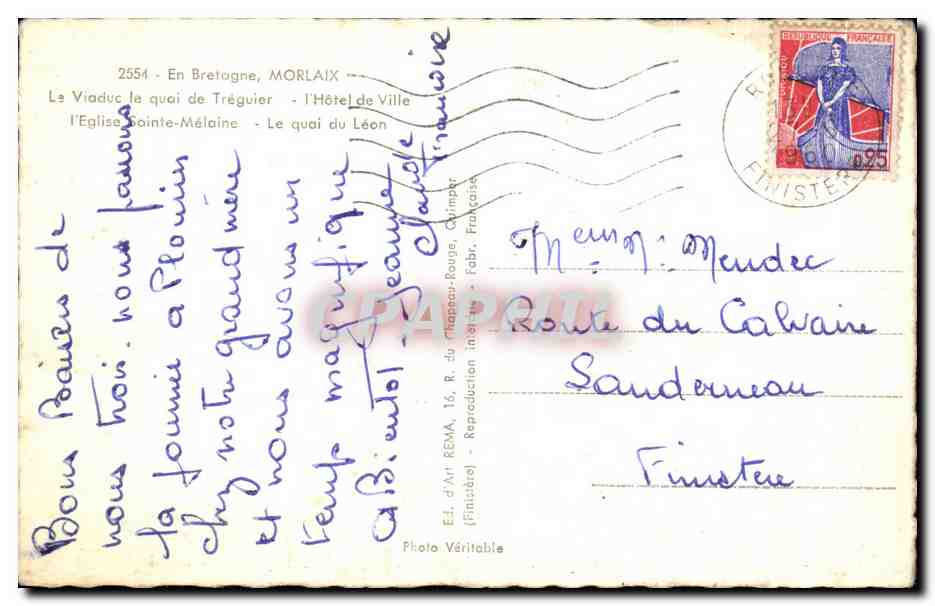 2554 - En Bretagne, MORLAIX
Le Viaduc le quai de Tréguier - l'Hôtel de Ville
l'Eglise Sainte-Mélaine - Le quai du Léon
Bons Baisers de
nous trois. nous passons
la journée a Plouins
chez notre grand mère
et nous avons un
temps magnifique
a Bientot. Jeanne
Claude
Francoise
Ed. d'Art REMA, 16, R. du Chapeau-Rouge, Quimper
(Finistère) - Reproduction interdite - Fabr. Française
Photo Véritable
REPUBLIQUE FRANÇAISE
0,25
1960
FINISTERE
Meur M. Mendec
Route du Calvaire
Landerneau
Finistere
CPAPHIL